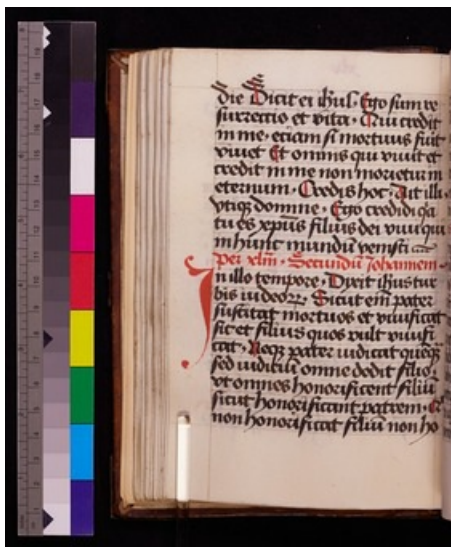 die Dicit ei ihus. Ego sum re
surrectio et vita. Qui credit
in me. eciam si mortuus fuit
vivet Et omnis qui vivit et
credit in me non morietur in
eternum. Credis hoc. Ait illi.
vtiq; domine. Ego credidi q̃a
tu es xp̃us filius dei viui qui
in hunc mundũ venisti
per xlm̃. Secundũ Johannem
In illo tempore. Dixit ihus tur
bis iudeorꝝ. Sicut em̃ pater
suscitat mortuos et viuificat
sic et filius quos vult viuifi
cat. Neq; pater iudicat quẽq̃
sed iudiciũ omne dedit filio.
vt omnes honorificent filiũ
sicut honorificant patrem. Q̃
non honorificat filiũ non ho